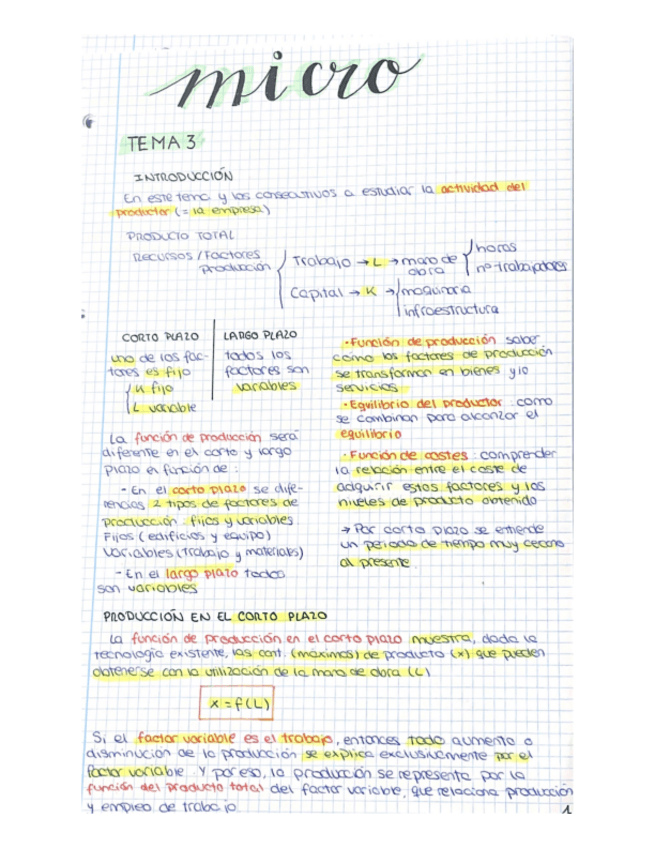 micro
TEMA 3
INTRODUCCIÓN
En este tema y los consecutivos a estudiar la actividad del
productor (= la empresa)
PRODUCTO TOTAL
RECURSOS / Factores
producción
Trabajo → L → mano de
obra
horas
nº trabajadores
Capital → K → maquinaria
infraestructura
CORTO PLAZO
uno de los fac-
tores es fijo
K fijo
L variable
LARGO PLAZO
todos los
factores son
variables
La función de producción será
diferente en el corto y largo
plazo en función de:
- En el corto plazo se dife-
rencias 2 tipos de factores de
producción: fijos y variables
Fijos (edificios y equipo)
Variables (trabajo y materiales)
- En el largo plazo todos
son variables
· Función de producción: saber
cómo los factores de producción
se transforman en bienes y/o
servicios
· Equilibrio del productor: como
se combinan para alcanzar el
equilibrio
· Función de costes: comprender
la relación entre el coste de
adquirir estos factores y los
niveles de producto obtenido
→ Por corto plazo se entiende
un periodo de tiempo muy cercano
al presente.
PRODUCCIÓN EN EL CORTO PLAZO
La función de producción en el corto plazo muestra, dada la
tecnología existente, las cant. (máximas) de producto (x) que pueden
obtenerse con la utilización de la mano de obra (L)
x = f(L)
Si el factor variable es el trabajo, entonces todo aumento o
disminución de la producción se explica exclusivamente por el
factor variable. Y por eso, la producción se representa por la
función del producto total del factor variable, que relaciona producción
y empleo de trabajo.
1